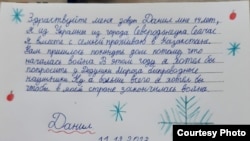 Здравствуйте меня зовут Данил мне 11 лет,
Я из Украины из города Северодонецка Сейчас
Я вместе с семьёй проживаю в Казахстане.
Нам пришлось покинуть дом потому что
началась война В этом году я хотел бы
попросить у Дедушки Мороза беспроводные
наушники Но и больше всего я хотел бы
чтобы в моей стране закончилась война.
Данил
11.12.2023
Courtesy Photo